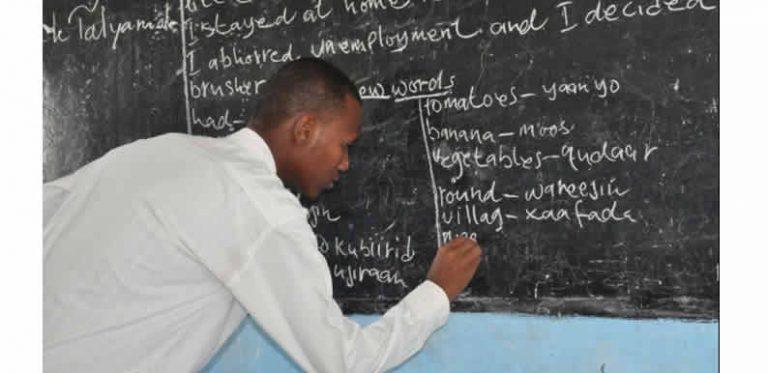 I stayed at home
Talyamate
I abhorred unemployment and I decided
brusher
new words
had-
tomatoes - yaanyo
banana - moos
vegetables - qudaar
round - wareesin
villag - xaafada
kubiirid
ujiraan